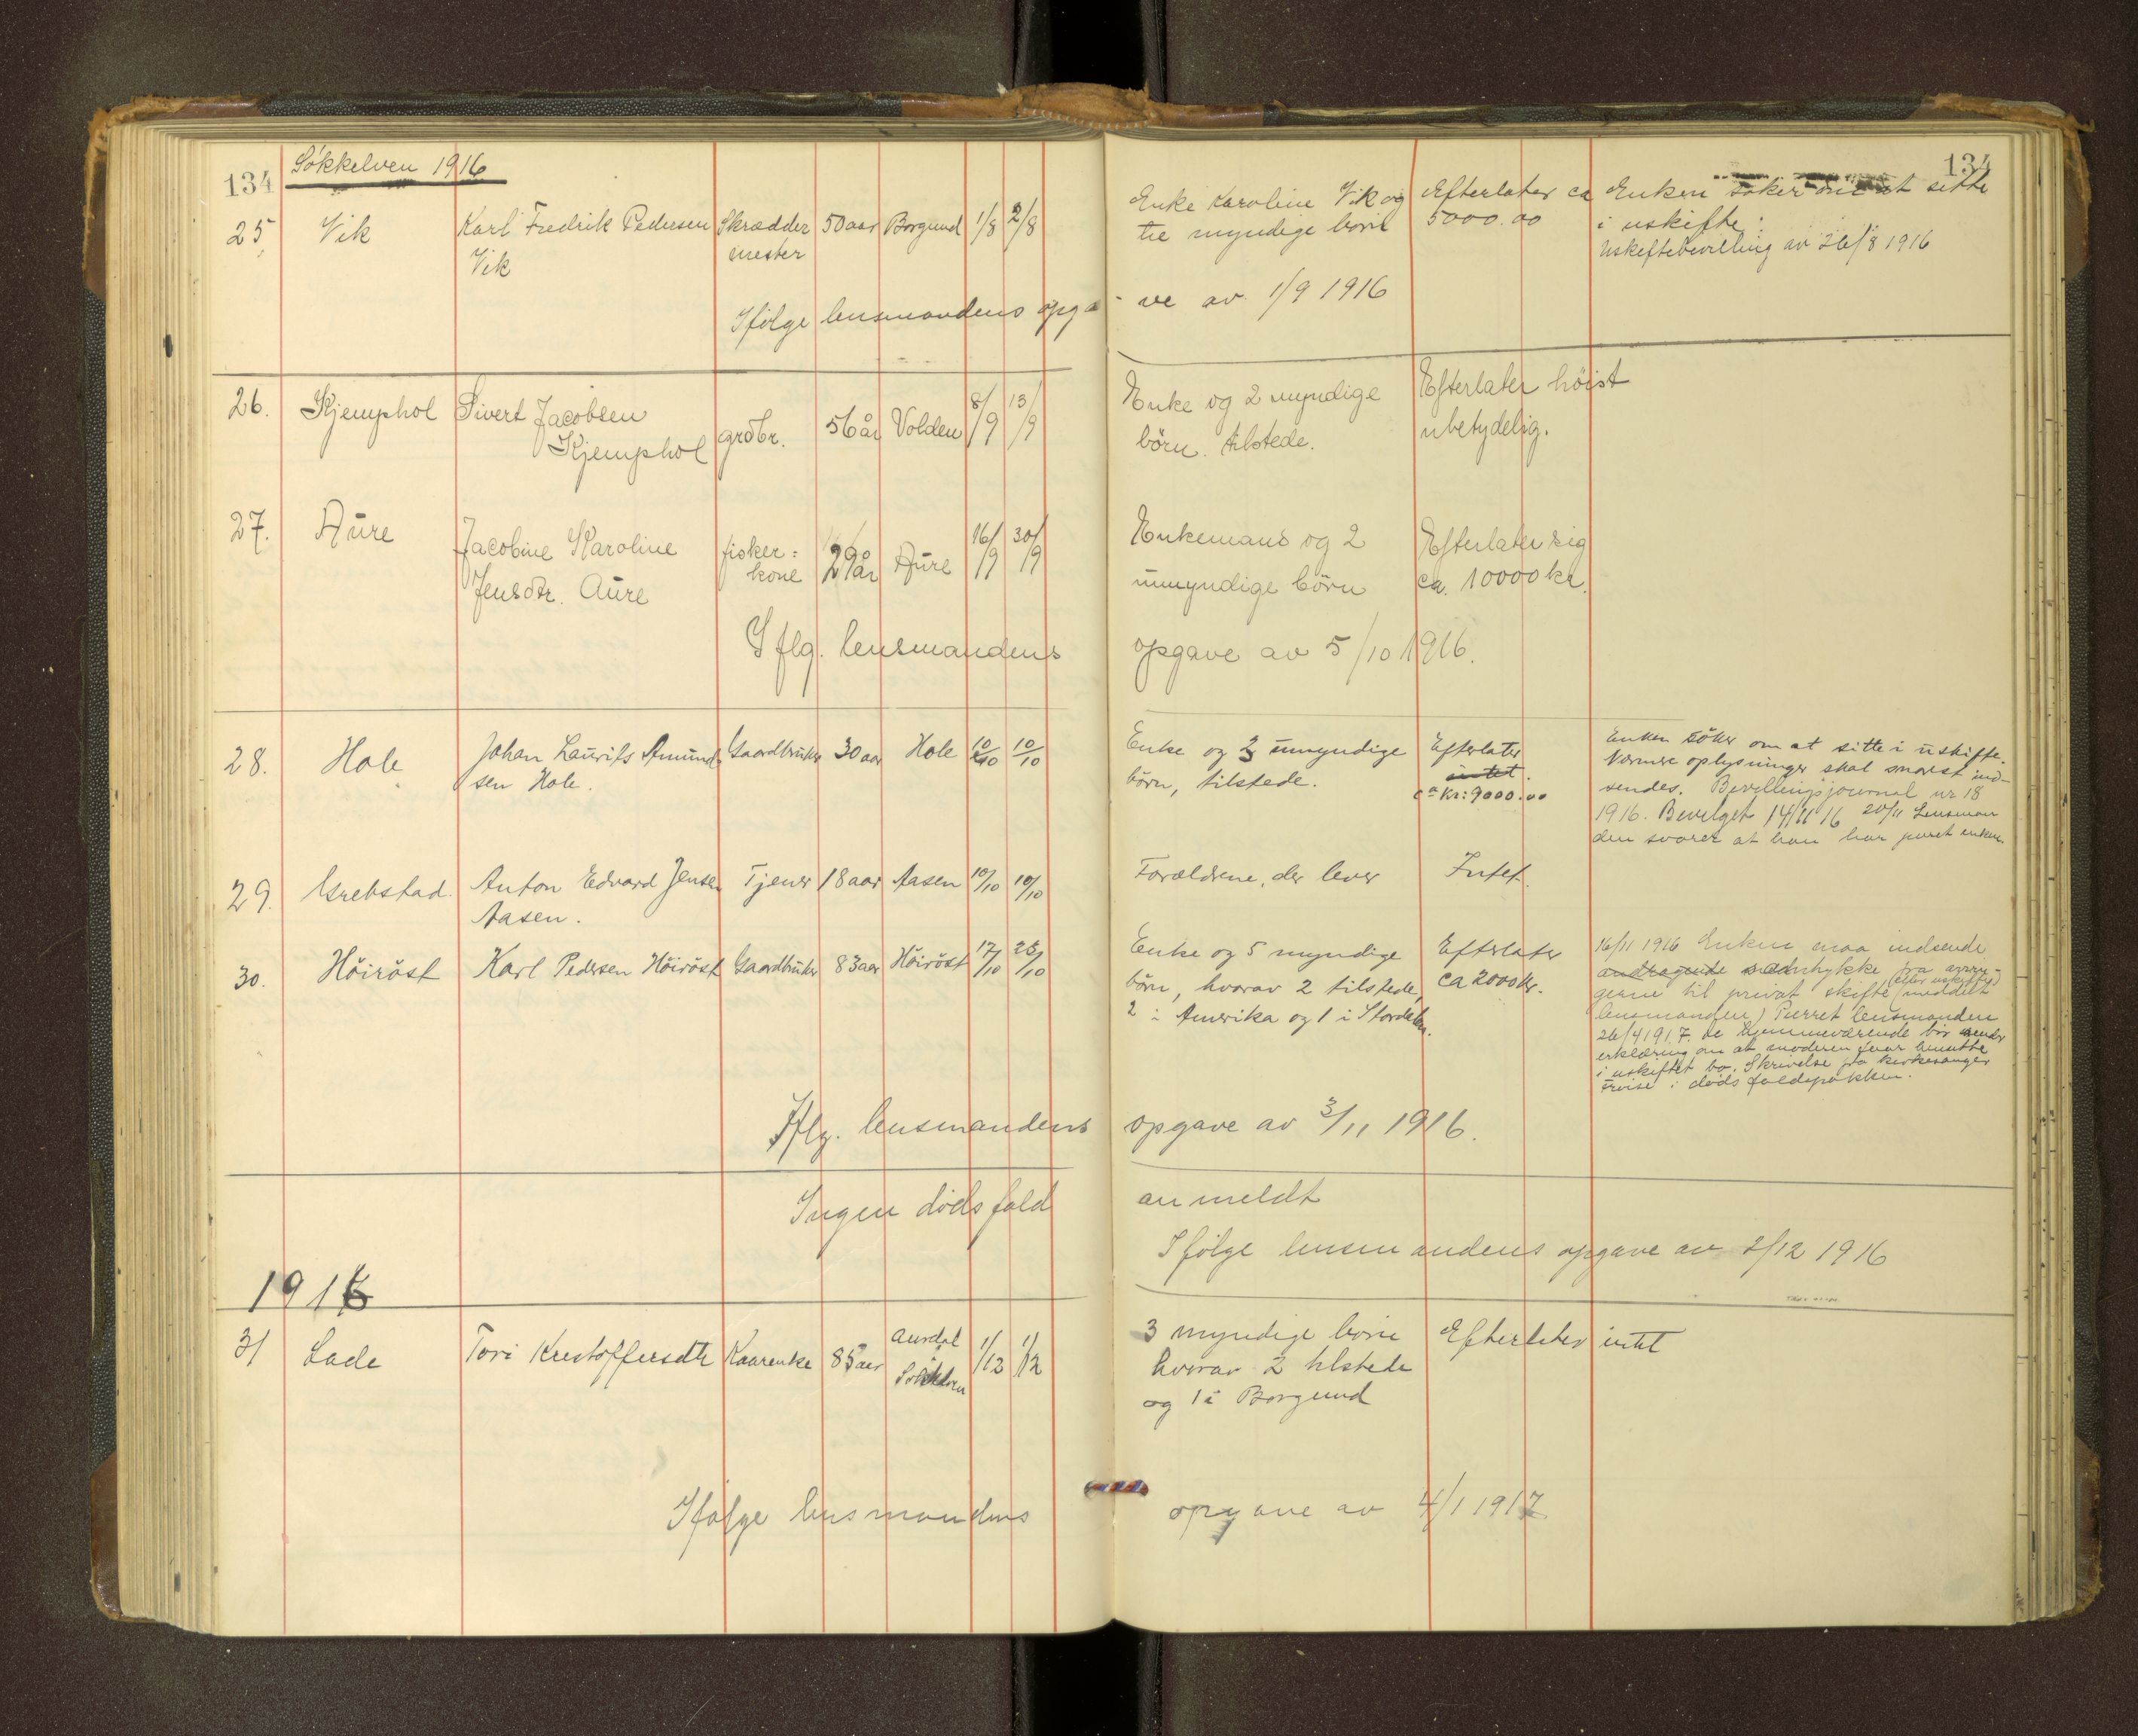 134 Søkkelven 1916 134
25 Vik Karl Fredrik Pedersen Skrædder 50 aar Borgund 1/8 2/8 Enke Karoline Vik og Efterlater ca Enken søker om at sitte
Vik mester tre myndige børn 5000.00 i uskifte.
Uskiftebevilling av 26/8 1916
Ifölge lensmandens opga- ve av 1/9 1916
26. Kjemphol Sivert Jacobsen grdbr. 56 år Volden 8/9 13/9 Enke og 2 myndige Efterlater höist
Kjemphol börn. tilstede. ubetydelig.
27. Aure Jacobine Karoline fisker= 29 år Aure 16/9 30/9 Enkemand og 2 Efterlater sig
Jensdtr. Aure kone umyndige börn ca. 10000 kr.
I flg. lensmandens opgave av 5/10 1916.
28. Hole Johan Laurits Amund- Gaardbruker 30 aar Hole 10/10 10/10 Enke og 3 umyndige Efterlater Enken söker om at sitte i uskifte.
sen Hole. börn, tilstede. intet. Nærmere oplysninger skal snarest ind-
ca Kr: 9000.00 sendes. Bevillingsjournal nr 18
1916. Bevilget 14/11 16 20/11 Lensman
den svarer at han har enken
29. Grebstad Anton Edvard Jensen Tjener 18 aar Aasen 10/10 10/10 Forældrene, der lever Intet.
Aasen.
30. Höiröst Karl Pedersen Höiröst Gaardbruker 83 aar Höiröst 17/10 25/10 Enke og 5 myndige Efterlater 16/11 1916 Enken maa indsende
börn, hvorav 2 tilstede, ca 2000 kr. andragende samtykke fra arvin-
2 i Amerika og 1 i Stordalen. gerne til privat skifte (eller uskifte) (meddelt
lensmanden) Purret lensmanden
26/4 1917. de hjemmeværende bör sende
erklæring om at moderen kan hensitte
i uskiftet bo. Skrivelse fra kirkesanger
i dödsfaldspakken.
Iflg. lensmandens opgave av 3/11 1916.
Ingen dödsfald anmeldt
Ifölge lensmandens opgave av 2/12 1916
1916
31 Lade Tori Kristoffersdtr Kaarenke 85 aar Aursdal 1/12 1/12 3 myndige börn Efterlater intet
hvorav 2 tilstede
og 1 i Borgund
Ifölge lensmandens opgave av 4/1 1917